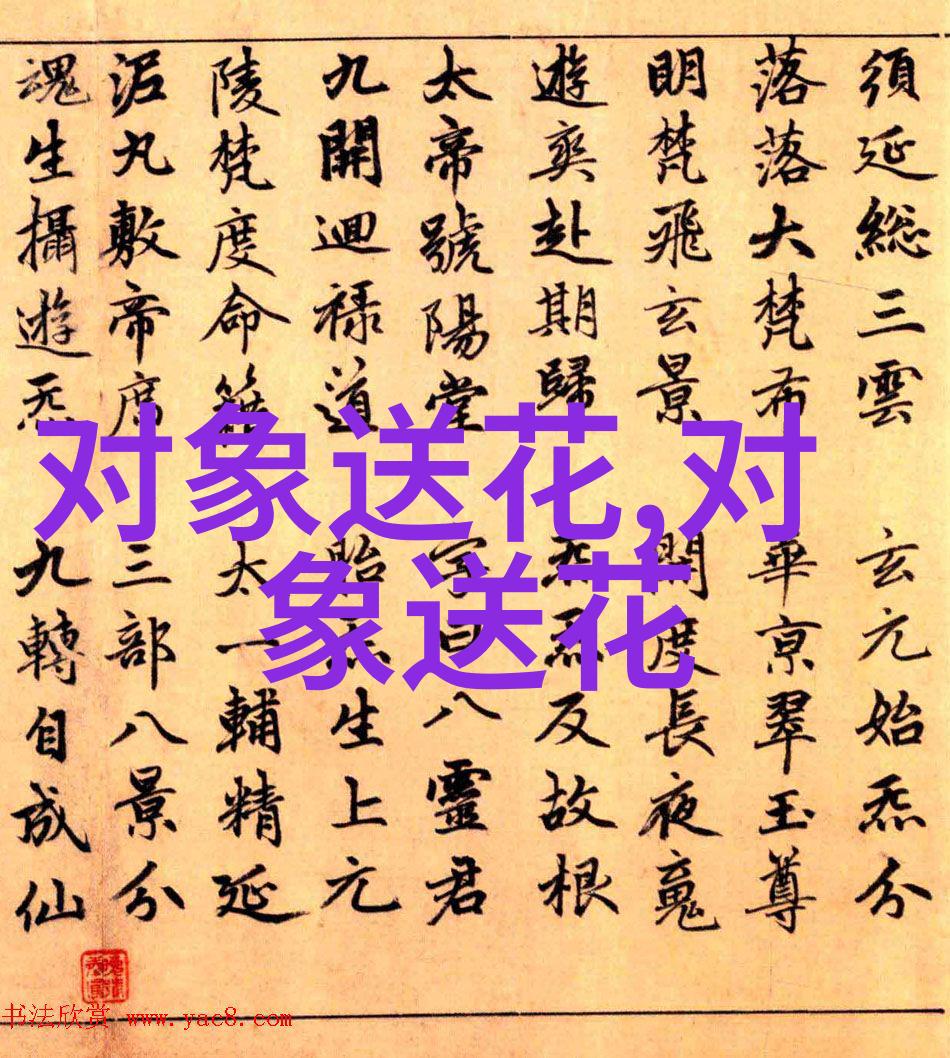 須延総三雲 玄元始炁分
落落大梵布 華亰翠玉尊
明梵飛玄景 開度長夜魂
遊爽赴期歸 炁反故根
太帝號陽堂 字曰八靈君
九開迴祿道 胎炁生上元
陵梵度命籍 太一輔精延
泥丸敷帝席 三部八景分
魂生攝遊炁 九轉自成仙
对象送花,对
象送花
书法欣赏 www.yac8.com